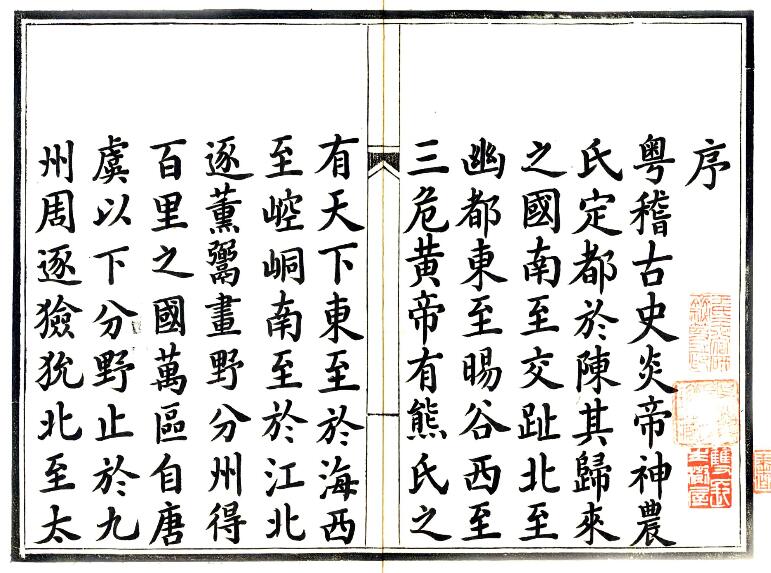 序
粤稽古史炎帝神農
氏定都於陳其歸來
之國南至交趾北至
幽都東至暘谷西至
三危黄帝有熊氏之
有天下東至於海西
至崆峒南至於江北
逐薰鬻畫野分州得
百里之國萬區自唐
虞以下分野止於九
州周逐獫狁北至太